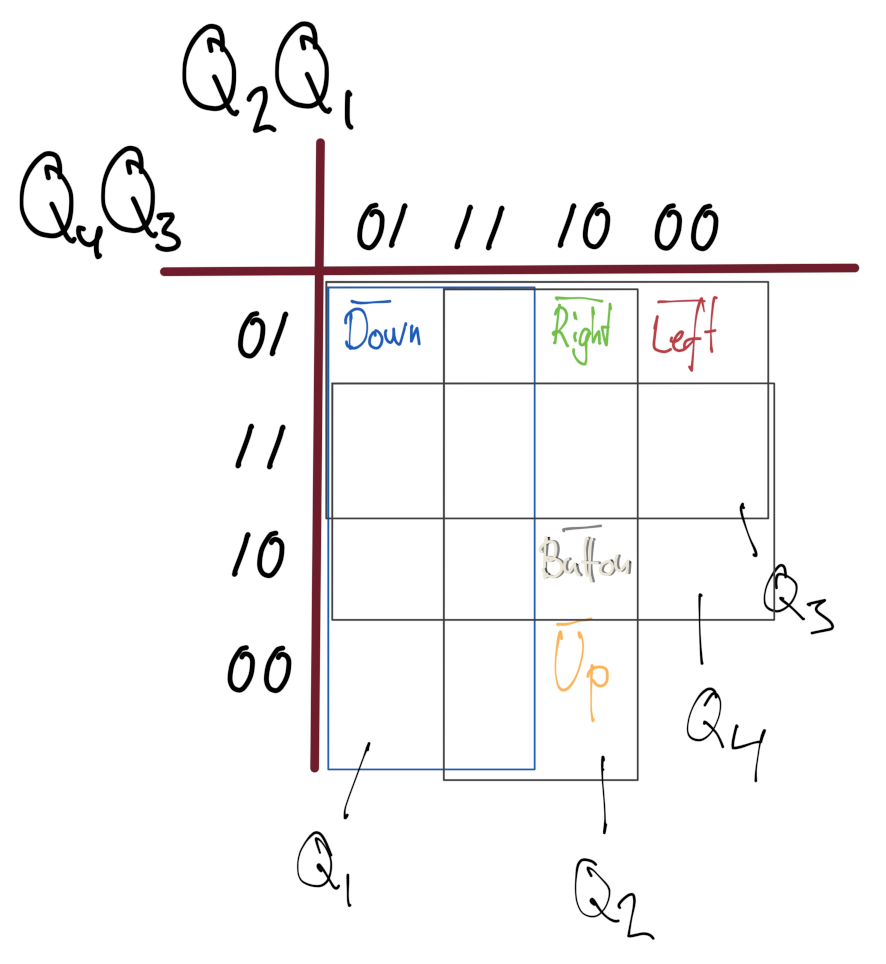 Q₂Q₁
Q₄Q₃
01 11 10 00
01 Down Right Left
11
10 Button
00 Up
Q₃
Q₄
Q₁
Q₂